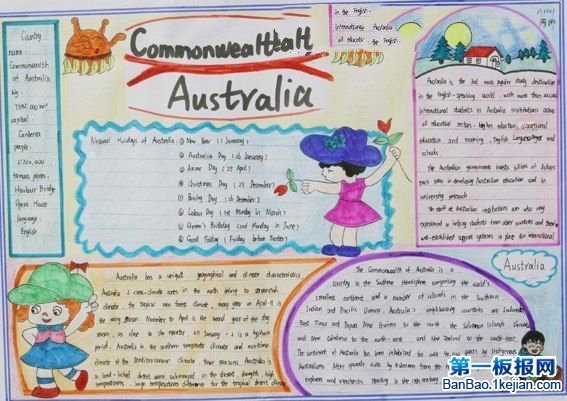 Country
name:
Commonwealth
of Australia
by
7692,000 km²
capital:
Canberra
people:
famous places:
Harbour Bridge
Opera House
language:
English
Commonwealth
Australia
in the English-
International Australia
all educate the English-
National Holidays of Australia ① New Year (1 January)
② Australia Day (26 January)
③ Anzac Day (25 April)
④ Christmas Day (25 December)
⑤ Boxing Day (26 December)
⑥ Labor Day (1st Monday in March)
⑦ Queen's Birthday (2nd Monday in June)
⑧ Good Friday (Friday before Easter)
Australia is the 3rd most popular study destination
in the English-speaking world, with more than
International students in Australia institutions across
all education sectors - higher education, vocational
education and training, English Language and
schools.
The Australian government invests billions of dollars
each year in developing Australian education and in
university research.
The staff at Australian institutions are also very
experienced in helping students from other countries and there
well-established support systems in place for international
Australia
Australia has a unique geographical and climate characteristics
Australia 2 climate zones in the north belong to savannah
climate, the tropical rain forest climate, every year on April-11 is
the rainy season. November to April is the
season, as close to the country on January-2 is a typhoon
period. Australia in the southern temperate climate and maritime
climate of the Mediterranean climate, four seasons. Australia is
a land-locked desert
temperatures, large temperatures difference for the tropical desert climate
The Commonwealth of Australia is a
country in the Southern Hemisphere comprising the world's
smallest continent and a number of islands in the Southern
Indian and Pacific Oceans. Australia's neighbouring countries are Indonesia
East Timor and Papua New Guinea to the north, the Solomon Islands
and New Caledonia to the north-east, and New Zealand to the south-east.
The continent of Australia has been inhabited for over years by Indigenous
Australians. After sporadic visits by fishermen from the
explorers and merchants starting in the 17th century
第一板报网
BanBao.1kejian.com